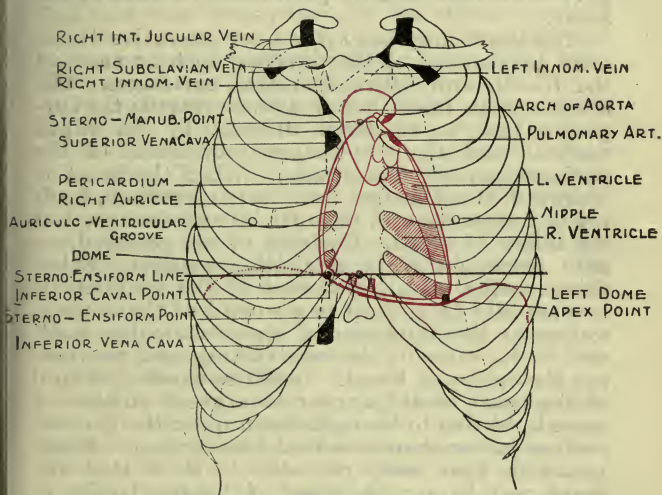 RIGHT INT. JUCULAR VEIN
RIGHT SUBCLAVIAN VEIN
RIGHT INNOM. VEIN
STERNO-MANUB. POINT
SUPERIOR VENA CAVA
PERICARDIUM
RIGHT AURICLE
AURICULO-VENTRICULAR
GROOVE
DOME
STERNO-ENSIFORM LINE
INFERIOR CAVAL POINT
STERNO-ENSIFORM POINT
INFERIOR VENA CAVA
LEFT INNOM. VEIN
ARCH OF AORTA
PULMONARY ART.
L. VENTRICLE
NIPPLE
R. VENTRICLE
LEFT DOME
APEX POINT